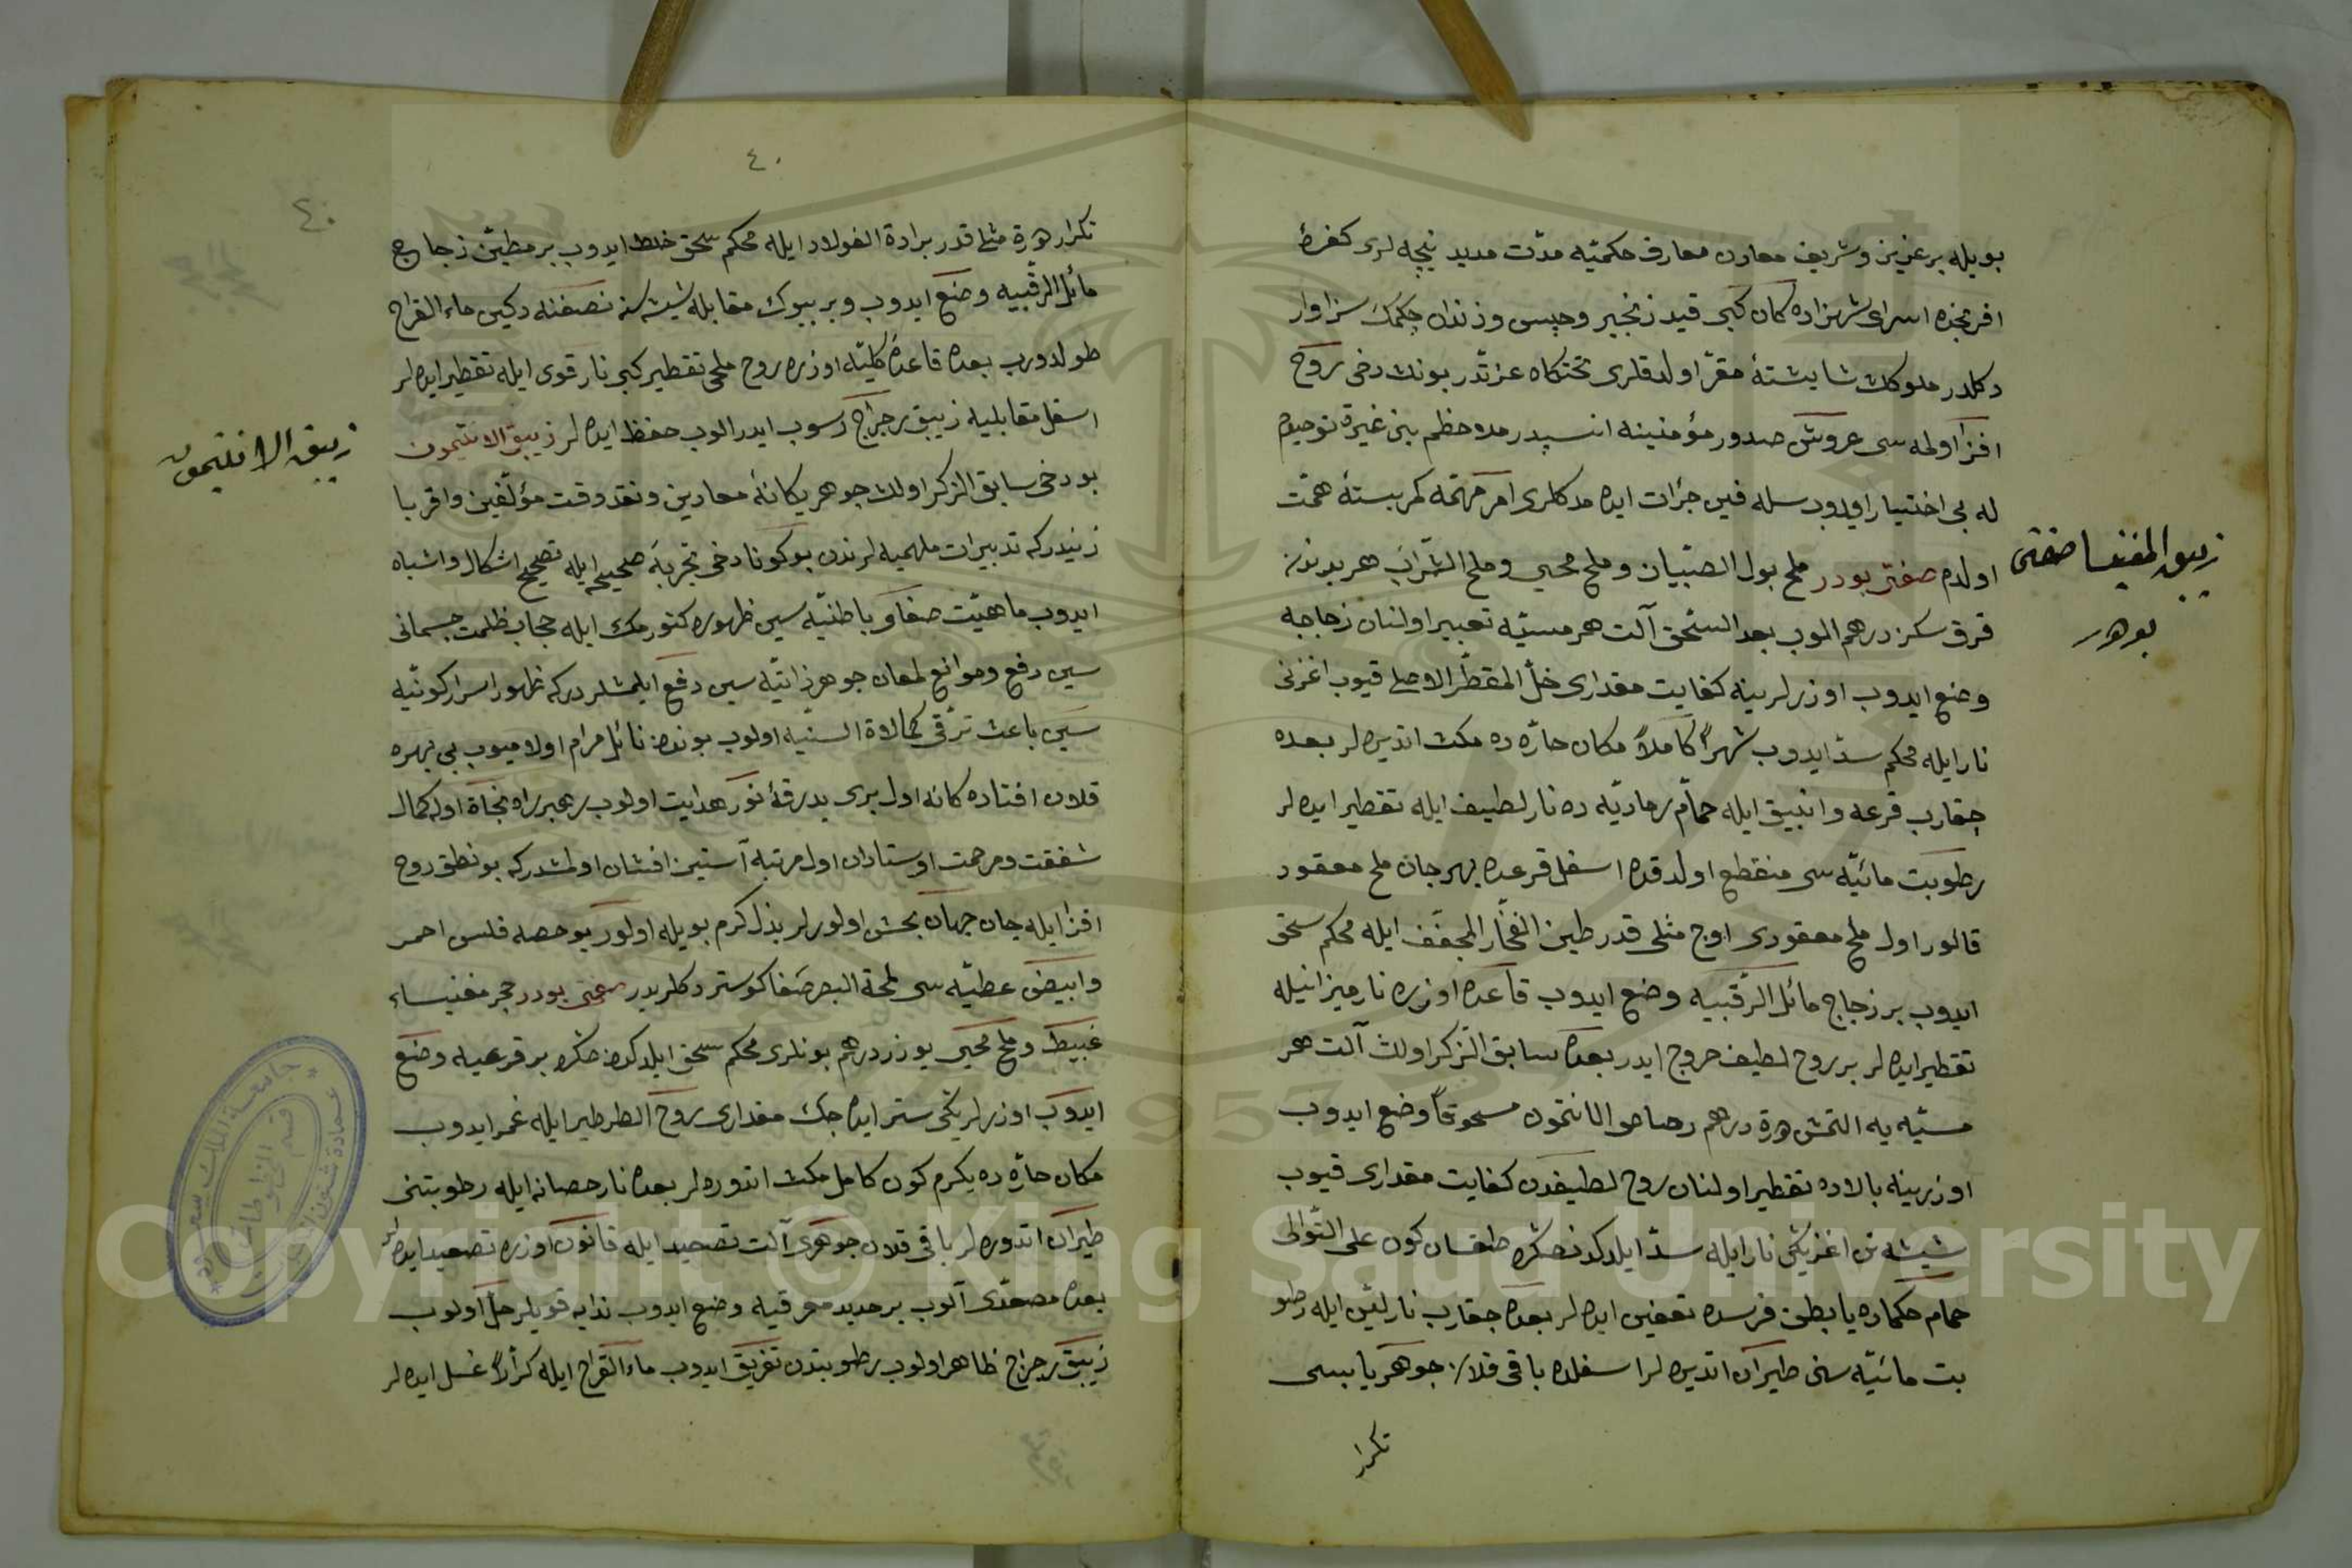 بويله بر عزيز و شريف معادن معارف حكميّه مدّت مديد نيجه لرى كفرهٔ
افرنجده اسراى شهزاده كان كبى قيد زنجير و حبس و زندان چكمك سزاوار
دكلدر ملوكك شايشتهٔ مقرّ اولدقلرى تختكاه عزتدر بونك دخى روح
افزا اولمه سى عروش صدور مؤمنينه انسيدر ملاحظم بنى غيرة توحيدم
له بى اختيار ايدوب سله فين جرات ايده مدكلرى امر مهمّه كمر بستهٔ همّت
اولدم صفتى بودر ملح بول الصبّيان و ملح محجى و ملح الشراب هر برندن
قرق سكز درهم الوب بعد السّحق آلت هرمسيّه تعبير اولنان زجاجه
وضع ايدوب اوزرلرينه كفايت مقدارى خلّ المقطّر الاصلى قيوب اغزنى
نار ايله محكم سدّ ايدوب شهراً كاملاً مكان حارّه ده مكث اتديره لر بعده
چقارب قرعه و انبيق ايله حمّام رماديّه ده نار لطيف ايله تقطير ايده لر
رطوبت مائيّه سى منقطع اولدقده اسفل قرعده بهرجان ملح معقود
قالور اول ملح معقودى اوج مثلى قدر طين الفخّار المجفّف ايله محكم سحق
ايدوب بر زجاج مائل الرقبيه وضع ايدوب قاعده اوزره نار ميزانيله
تقطير ايده لر بر روح لطيف خروج ايدر بعده سابق الذّكر اولان آلت هر
مسيّه يه التمش درهم رصاص الانتمون مسحوقاً وضع ايدوب
اوزرينه بالاده تقطير اولنان روح لطيفدن كفايت مقدارى قيوب
شيشه نك اغزينى نار ايله سدّ ايلدكدنصكره طقسان كون على التّوالى
حمام حكماده يا بطن فرسده تعفين ايده لر بعده چقارب نار ليّن ايله رطو
بت مائيّه سنى طيران اتديره لر اسفلده باقى قلان جوهر يابسى
تكرار
زيبق المغنيسا صفتى
بودر
٤٠
٤٠
تكرار درة مثلى قدر برادة الفولاد ايله محكم سحق خلط ايدوب بر مطيّن زجاج
مائل الرقبيه وضع ايدوب و بر بيوك مقابله شيشه سنه نصفنه دكين ماء القراح
طولدورب بعده قاعدهٔ كليّه اوزره روح ملح تقطير كبى نار قوى ايله تقطير ايده لر
اسفل مقابليه زيبق رجراج رسوب ايدر الوب حفظ ايده لر زيبق الانتيمون
بو دخى سابق الذكر اولان جوهر يكانهٔ معادين و نقد وقت مؤلّفين و اقربا
زنيدركه تدبيرات ملهميه لرندن بو كونا دخى تجربهٔ صحيحه ايله تصحيح اشكال و اشباه
ايدوب ماهيّت صفاو باطنيّه سين ظهوره كتورمك ايله حجاب ظلمت جسمانى
سين رفع و موانع لمعان جوهر ذاتيّه سين دفع ايلمشلردركه ظهور اسرار كونيّه
سين باعث ترقى كمالاة السنيّه اولوب بوندن نائل مرام اولاميوب بى بهره
قلان افتاده كانه اول برى بدرقهٔ نور هدايت اولوب رهبر راه نجاة اوله كمال
شفقت و مرحمت اوستادان اول مرتبه آستين افشان اولمشدركه بو نطق روح
افزا ايله جان جهان بخش اولورلر بذل كرم بويله اولور بو حصه فلس احمر
و ابيض عطيّه سى لمحة البصر صفا كوستردكلريدر صفتى بودر حجر مغنيساء
غبيط و ملح محجى يوزر درهم بونلرى محكم سحق ايلدكدن صكره بر قرعيه وضع
ايدوب اوزرلرينى ستر ايده جك مقدارى روح الطرطير ايله غمر ايدوب
مكان حارّه ده يكرم كون كامل مكث اتدوره لر بعده نار حصانه ايله رطوبتنى
طيران اتدوره لر باقى قلان جوهرى آلت تصعيد ايله قانون اوزره تصعيد ايده لر
بعده مصعّدى آلوب بر حديد مغرفيه وضع ايدوب ندايه قويلر حلّ اولوب
زيبق رجراج ظاهر اولوب رطوبتدن تفريق ايدوب ماء القراح ايله كرّراً غسل ايده لر
زيبق الانتيمون
جامعة الملك سعود
عمادة شئون المكتبات
قسم المخطوطات
Copyright © King Saud University